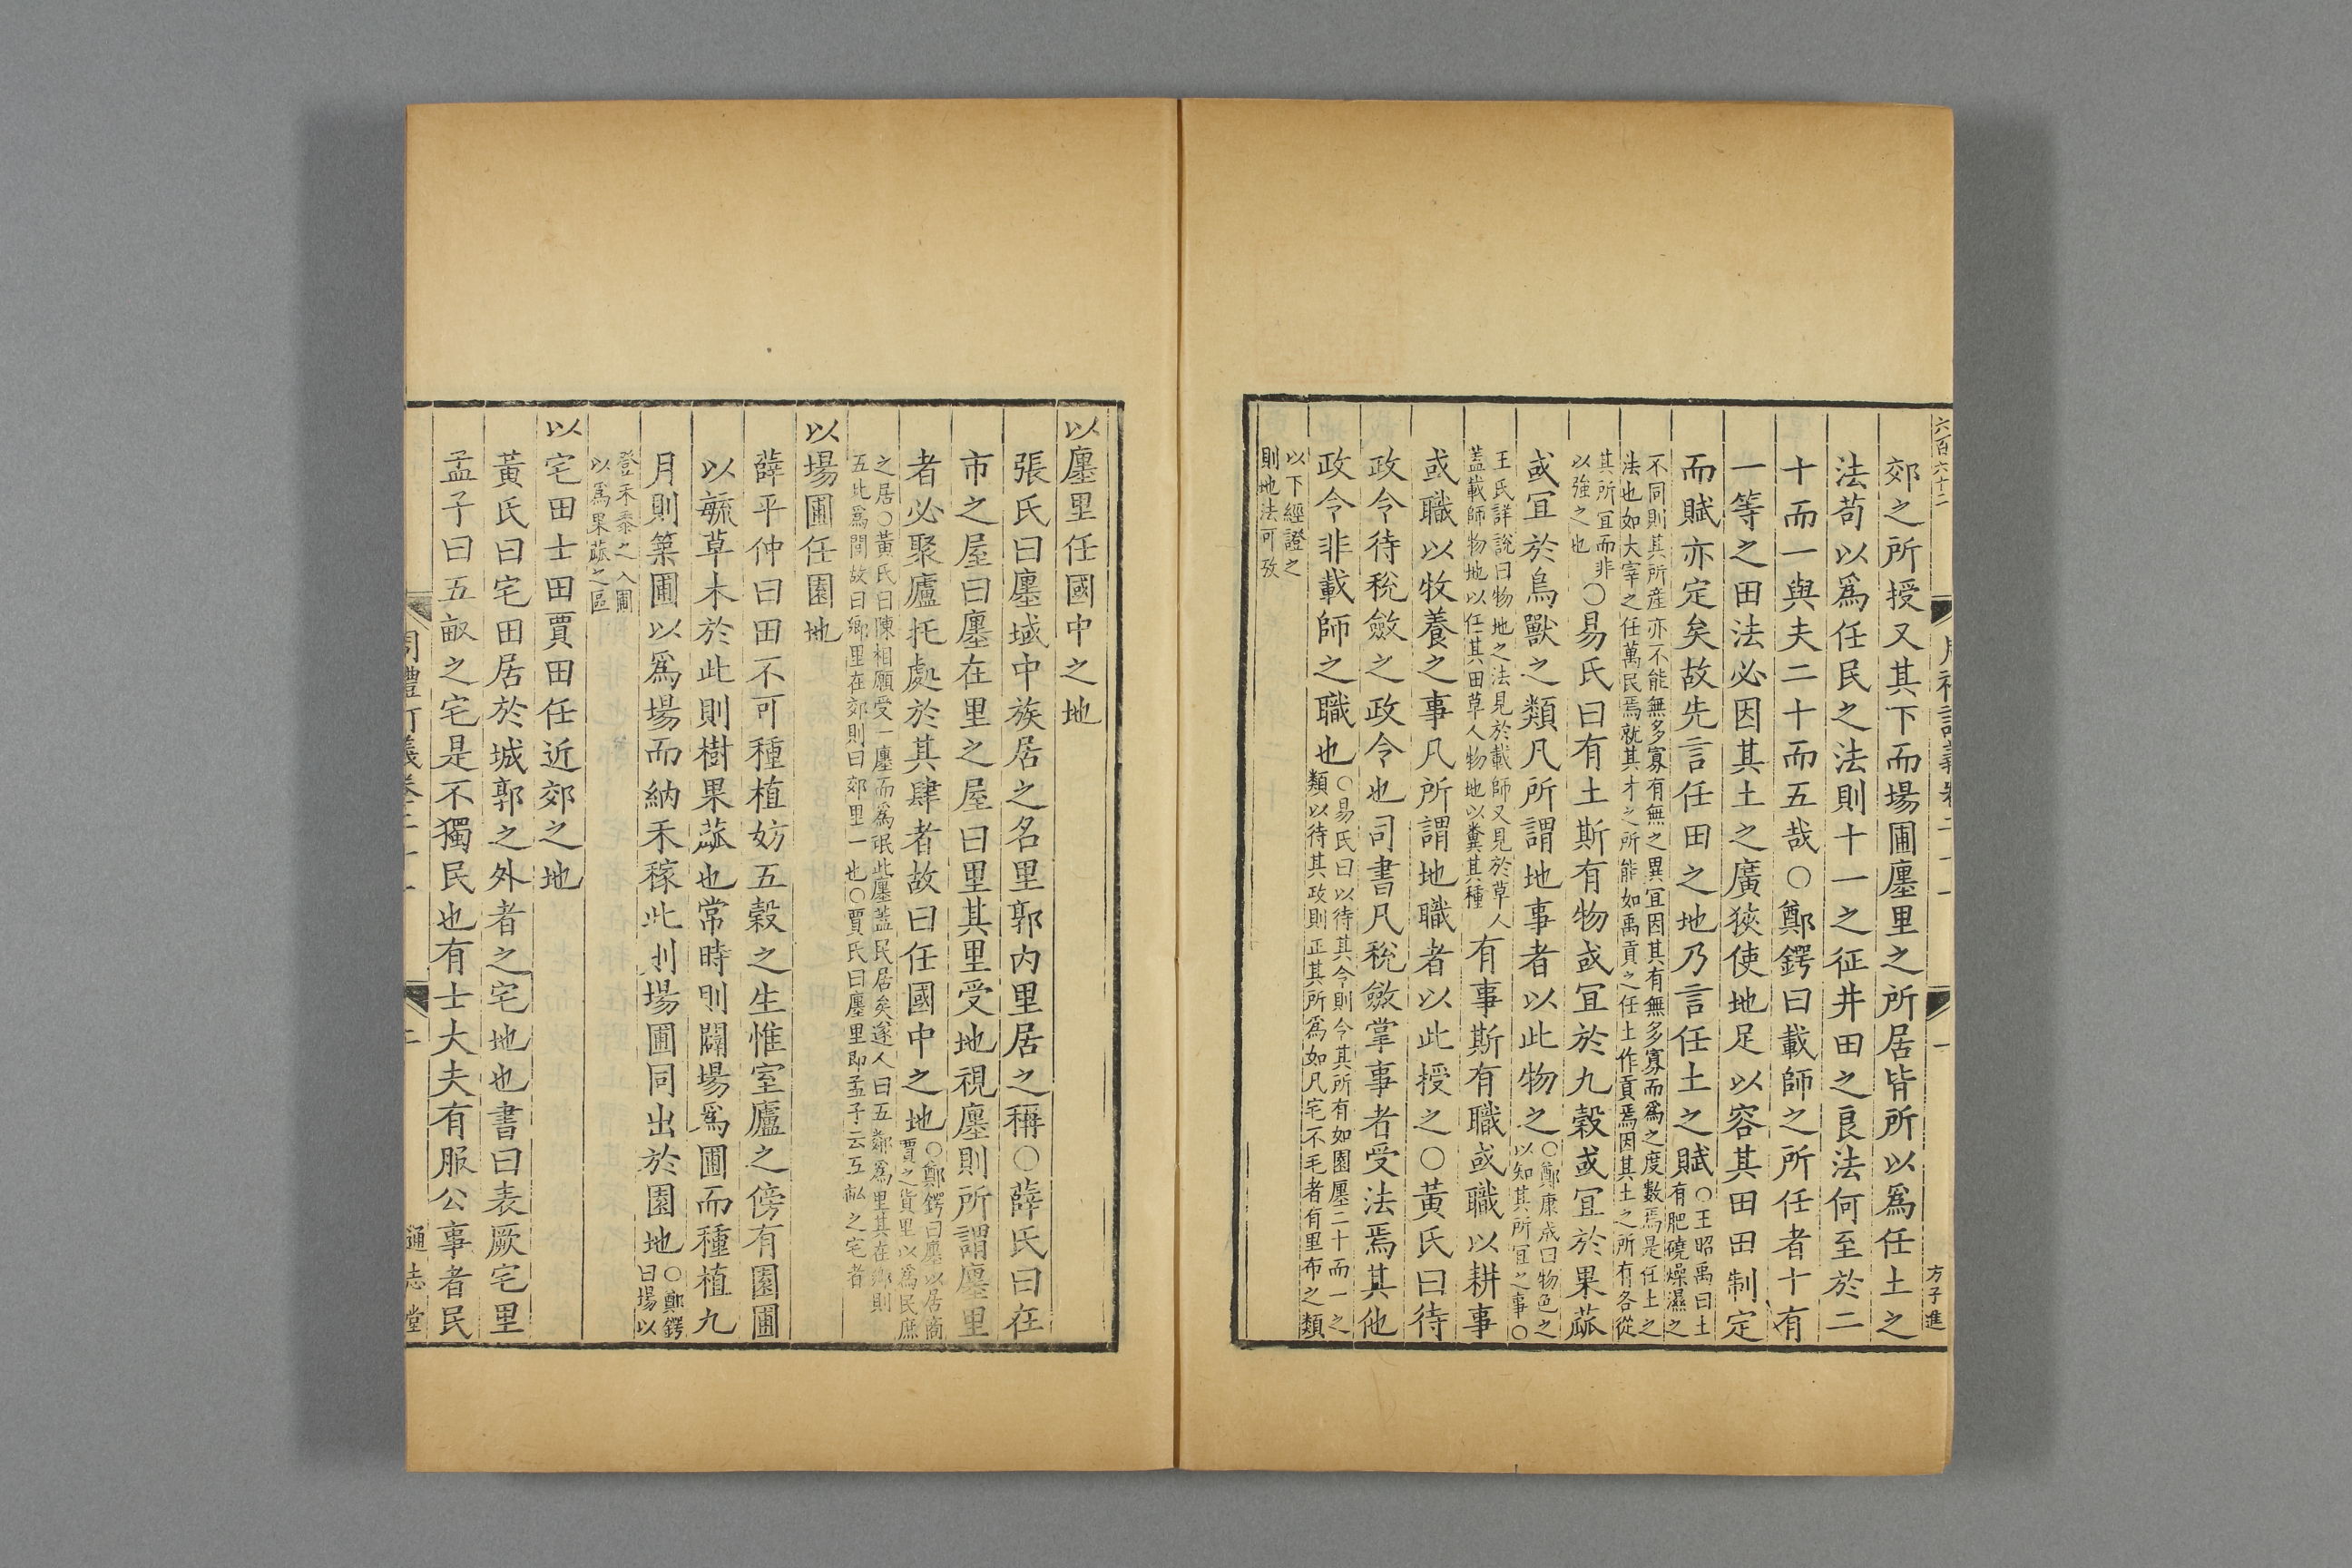 六百六十二
方子進
郊之所授又其下而場圃廛里之所居皆所以爲任土之
法苟以爲任民之法則十一之征井田之良法何至於二
十而一與夫二十而五哉○鄭鍔曰載師之所任者十有
一等之田法必因其土之廣狹使地足以容其田田制定
而賦亦定矣故先言任田之地乃言任土之賦○王昭禹曰土
有肥磽燥濕之
不同則其所産亦不能無多寡有無之異冝因其有無多寡而爲之度數焉是任土之
法也如大宰之任萬民焉就其才之所能如禹貢之任土作貢焉因其土之所有各從
其所冝而非
以強之也
○易氏曰有土斯有物或冝於九穀或冝於果蓏
或冝於鳥獸之類凡所謂地事者以此物之○鄭康成曰物色之
以知其所冝之事○
王氏詳說曰物地之法見於載師又見於草人
蓋載師物地以任其田草人物地以糞其種
有事斯有職或職以耕事
或職以牧養之事凡所謂地職者以此授之○黃氏曰待
政令待稅斂之政令也司書凡稅斂掌事者受法焉其他
政令非載師之職也○易氏曰以待其令則令其所有如園廛二十而一之
類以待其政則正其所爲如凡宅不毛者有里布之類
以下經證之
則地法可攷
以廛里任國中之地
張氏曰廛域中族居之名里郭内里居之稱○薛氏曰在
市之屋曰廛在里之屋曰里其里受地視廛則所謂廛里
者必聚廬托處於其肆者故曰任國中之地○鄭鍔曰廛以居商
賈之貨里以爲民庶
之居○黃氏曰陳相願受一廛而爲氓此廛蓋民居矣遂人曰五鄰爲里其在鄉則
五比爲閭故曰鄉里在郊則曰郊里一也○賈氏曰廛里即孟子云五畝之宅者
以場圃任園地
薛平仲曰田不可種植妨五穀之生惟室廬之傍有園圃
以毓草木於此則樹果蓏也常時則闢場爲圃而種植九
月則築圃以爲場而納禾稼此則場圃同出於園地○鄭鍔
曰場以
登禾黍之入圃
以爲果蓏之區
以宅田士田賈田任近郊之地
黃氏曰宅田居於城郭之外者之宅地也書曰表厥宅里
孟子曰五畝之宅是不獨民也有士大夫有服公事者民
周禮訂義卷二十一
二
通志堂